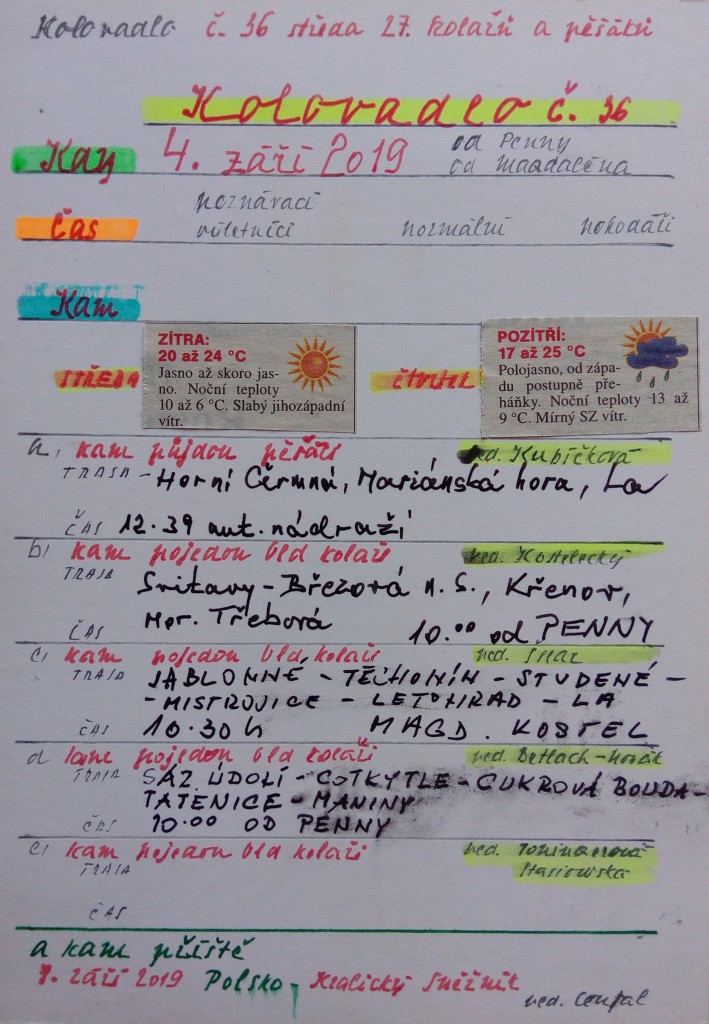 Kolovadlo č. 36 středa 27. kolařů a pěšáků
Kolovadlo č. 36
Kdy 4. září 2019 od Penny
od Magdaléna
Čas poznávací
výletníci normální pohodáři
Kam
ZÍTRA:
20 až 24 °C
Jasno až skoro jas-
no. Noční teploty
10 až 6 °C. Slabý jihozápadní
vítr.
POZÍTŘÍ:
17 až 25 °C
Polojasno, od zápa-
du postupně pře-
háňky. Noční teploty 13 až
9 °C. Mírný SZ vítr.
STŘEDA
čtvrtek
a, kam půjdou pěšáci ved. Kubíčková
TRASA - Horní Čermná, Mariánská hora, La
ČAS 12.39 aut. nádraží
b, kam pojedou bld kolaři ved. Kostelecký
TRASA Svitavy - Březová n. S., Křenov,
Mor. Třebová
ČAS 10.00 od PENNY
c, kam pojedou bld kolaři ved.
TRASA JABLONNÉ - TĚCHONÍN - STUDENÉ -
- MISTROVICE - LETOHRAD - LA
ČAS 10.30 h MAGD. KOSTEL
d kam pojedou bld kolaři ved. Betlach - Novák
TRASA SÁZ. ÚDOLÍ - COTKYTLE - CUKROVÁ BOUDA -
TATENICE - MANINY
ČAS 10.00 OD PENNY
e, kam pojedou bld kolaři ved.
TRASA
ČAS
a kam příště
7. září 2019 Polsko - Kralický Sněžník
ved. Coufal